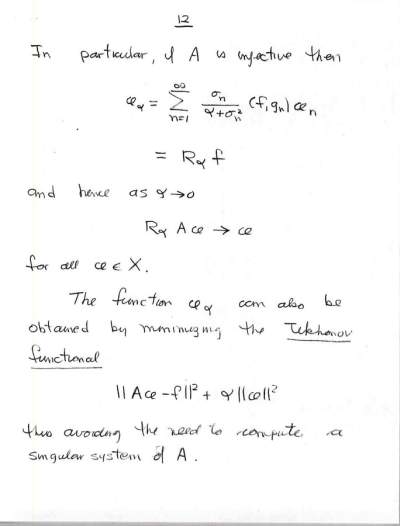 12
In particular, if A is injective then
φ_α = ∑_{n=1}^{∞} σ_n/(α+σ_n²) (f, g_n) φ_n
= R_α f
and hence as α→0
R_α A φ → φ
for all φ ∈ X.
The function φ_α can also be
obtained by minimizing the Tikhonov
functional
||Aφ - f||² + α ||φ||²
thus avoiding the need to compute a
singular system of A.